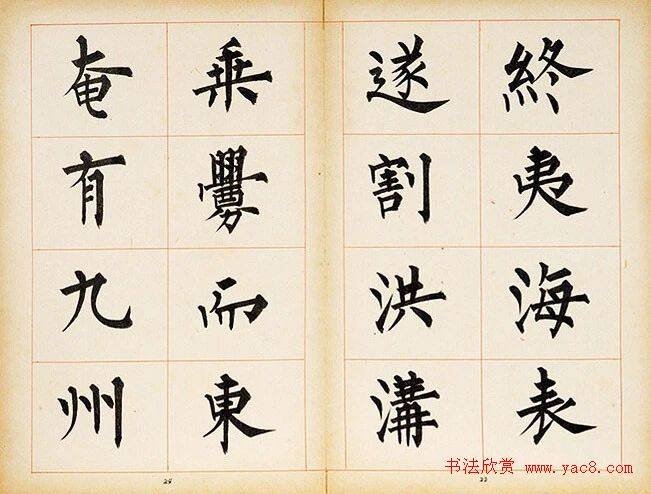 終夷海表
遂割洪溝
乗釁而東
奄有九州
书法欣赏 www.yac8.com